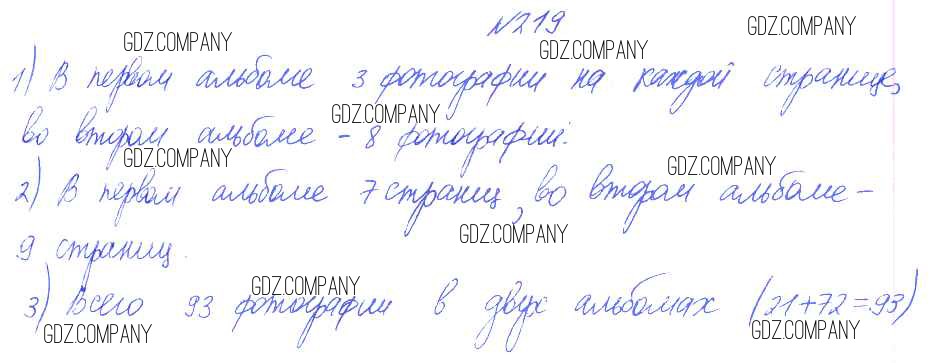 №219
1) В первом альбоме 3 фотографии на каждой странице,
во втором альбоме - 8 фотографий.
2) В первом альбоме 7 страниц, во втором альбоме -
9 страниц.
3) Всего 93 фотографии в двух альбомах (21+72=93)
GDZ.COMPANY
GDZ.COMPANY
GDZ.COMPANY
GDZ.COMPANY
GDZ.COMPANY
GDZ.COMPANY
GDZ.COMPANY
GDZ.COMPANY
GDZ.COMPANY
GDZ.COMPANY